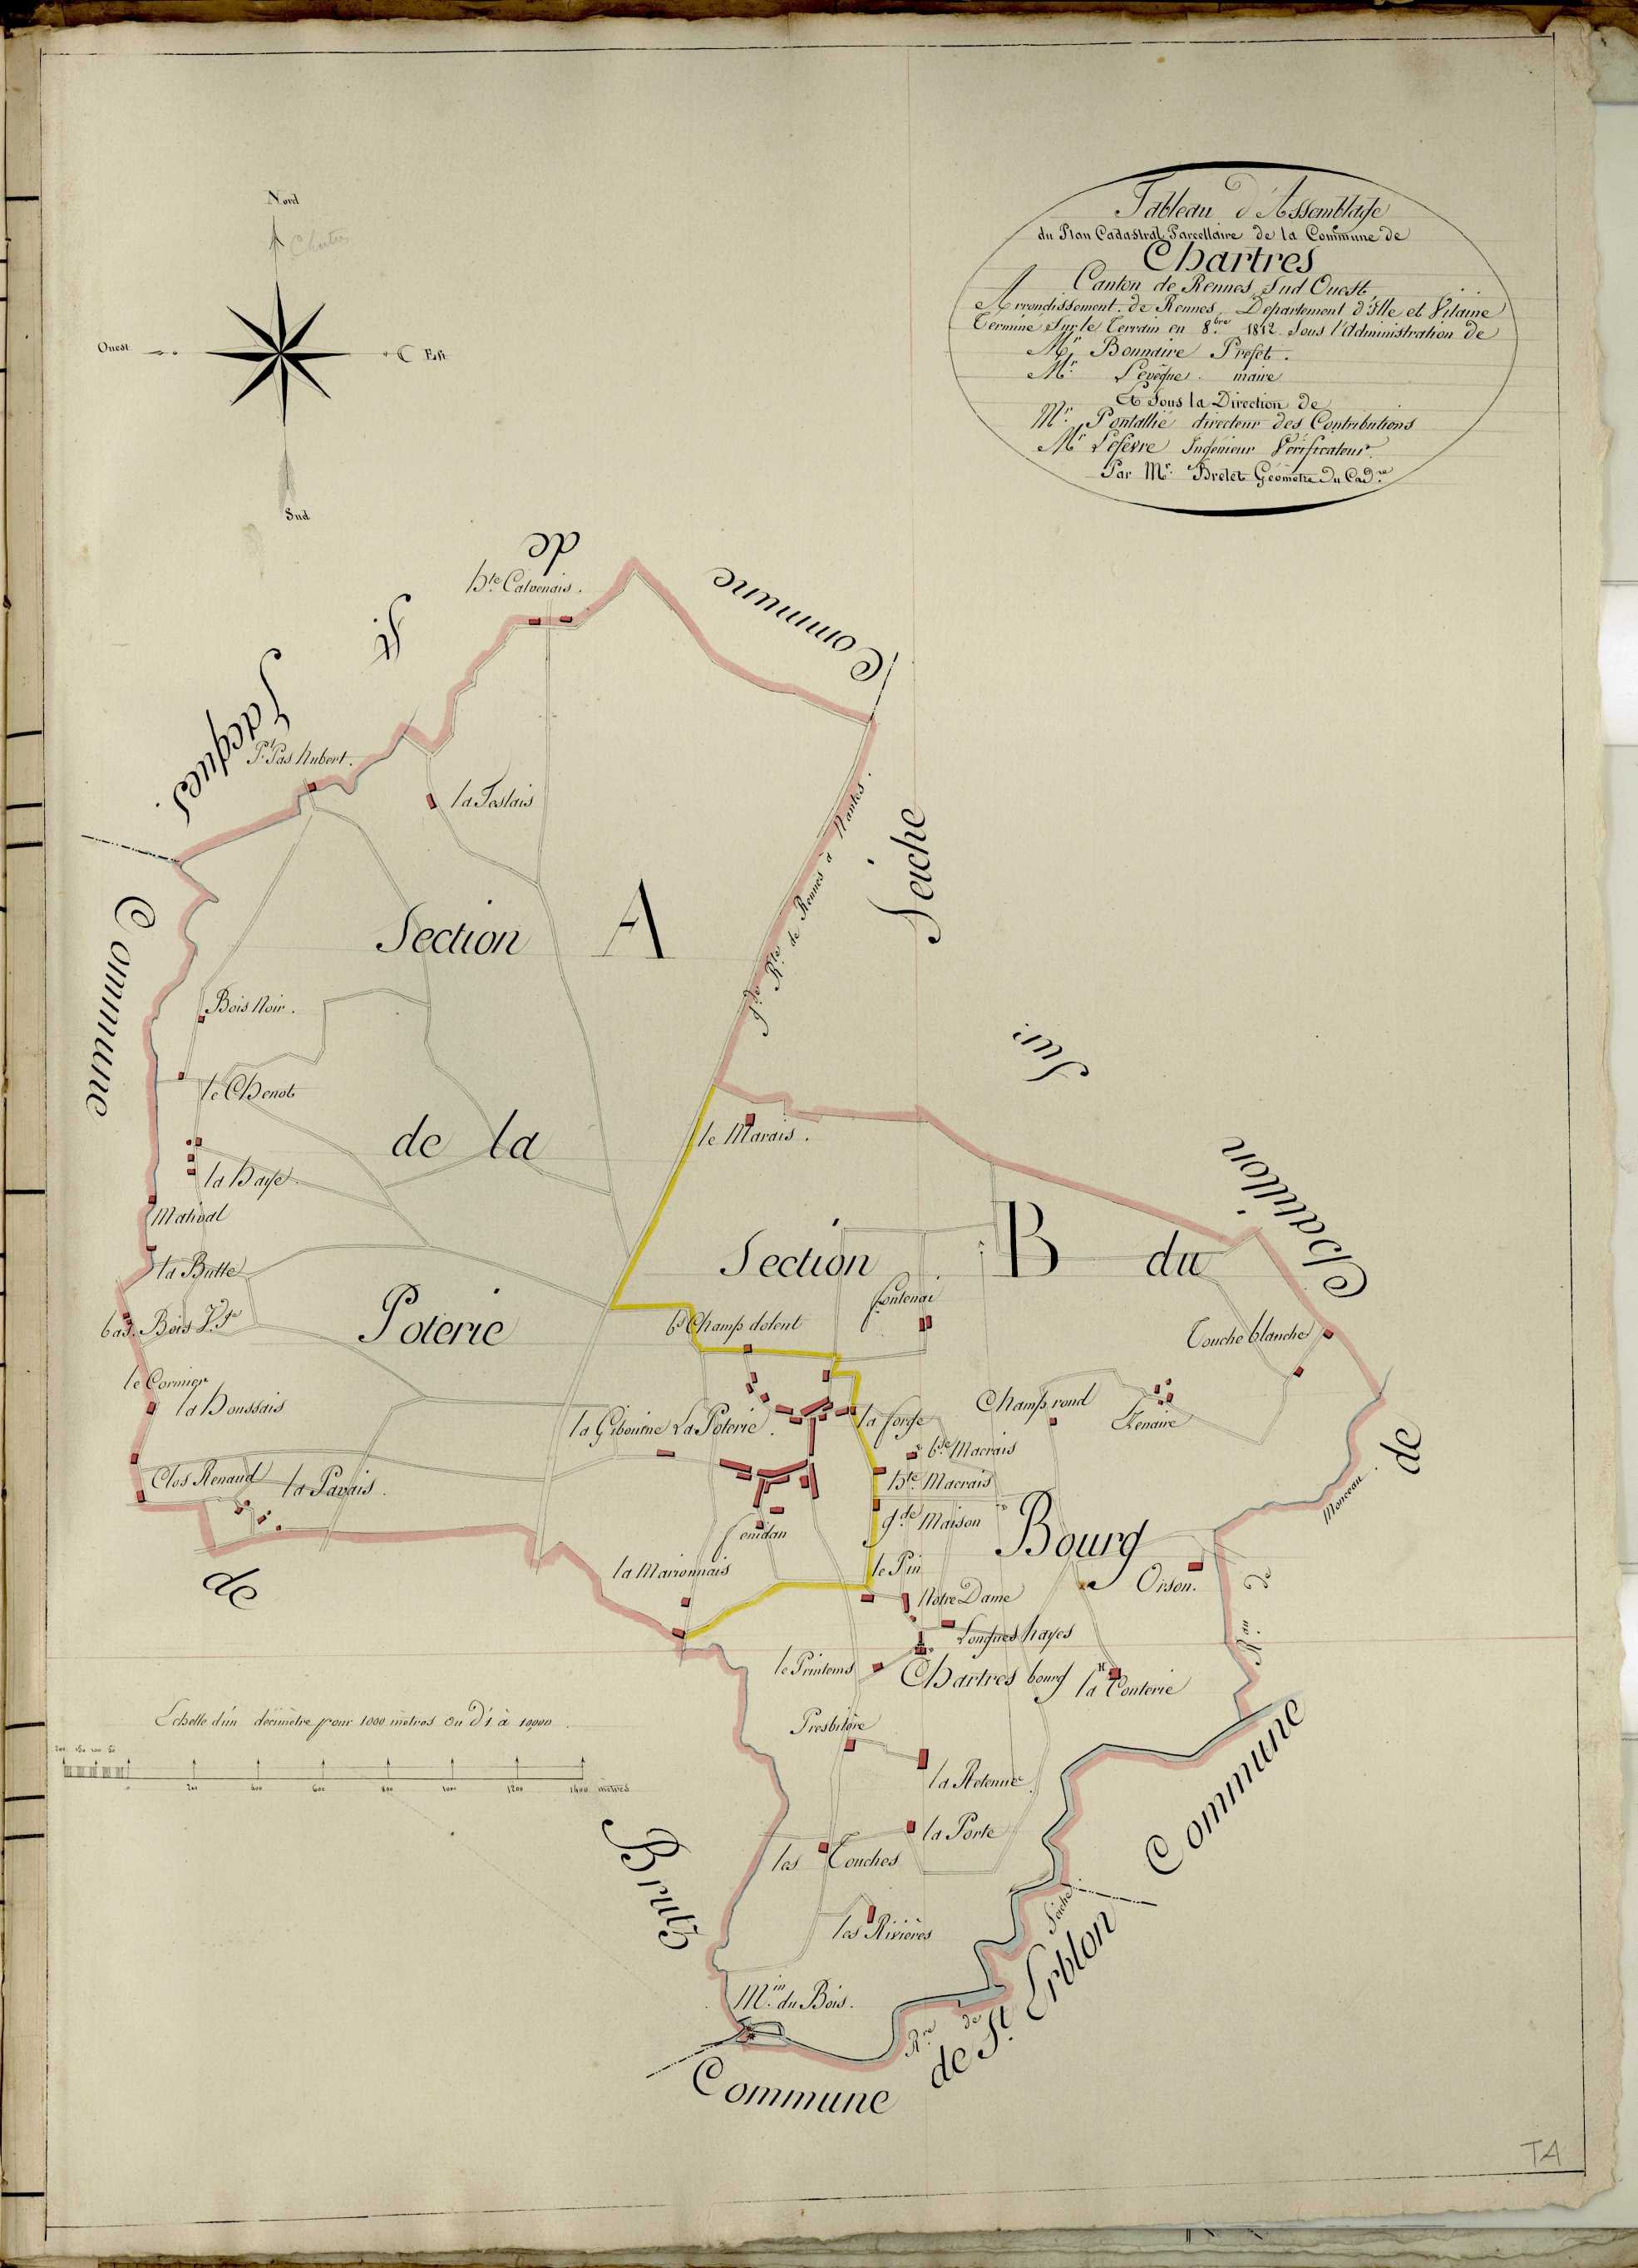 Nord
Chartres
Ouest
Est
Sud
Tableau d'Assemblage
du Plan Cadastral Parcellaire de la Commune de
Chartres
Canton de Rennes Sud Ouest
Arrondissement de Rennes Departement d'Ille et Vilaine
Terminé Sur le Terrain en 8.bre 1812 Sous l'Administration de
Mr. Bonnaire Prefet.
Mr. Levêque maire
Et Sous la Direction de
Mr. Pontallié directeur des Contributions
Mr Lefevre Ingénieur Vérificateur.
Par Mr. Brelet Géometre du Cad.re
Commune
de
St
Jacques.
hte Calvenais.
Pt Pas hubert.
la Taslais
gde Rte de Rennes à Nantes.
Seiche
Section A
Commune
Bois Noir.
le Chenot
de la
la Haye.
Mativat
la Butte
bas. Bois Vte
Poterie
le Cormier
la houssais
Clos Renaud
la Pavais.
de
le Marais.
Sur
Chatillon
Section B du
fontenai
bs Champ dolent
Touche blanche
la Gibourne
La Poterie.
la forge
Champ rond
Zenaire
bse Macrais
hte Macrais
gde Maison
Bourg
Monceau.
de
fenidan
la Marionnais
le Pin
Notre Dame
Orson.
Rau de
Longues hayes
le Printems
Chartres bourg
la Conterie
Echelle d'un decimètre pour 1000 mètres ou d'1 à 10,000.
200 150 100 50
0 200 400 600 800 1000 1200 1400 metres
Presbitère
la Retenue
la Porte
les Touches
les Rivières
Min du Bois.
Brutz
Commune
de St Erblon
Rre de Seiche
Commune
TA